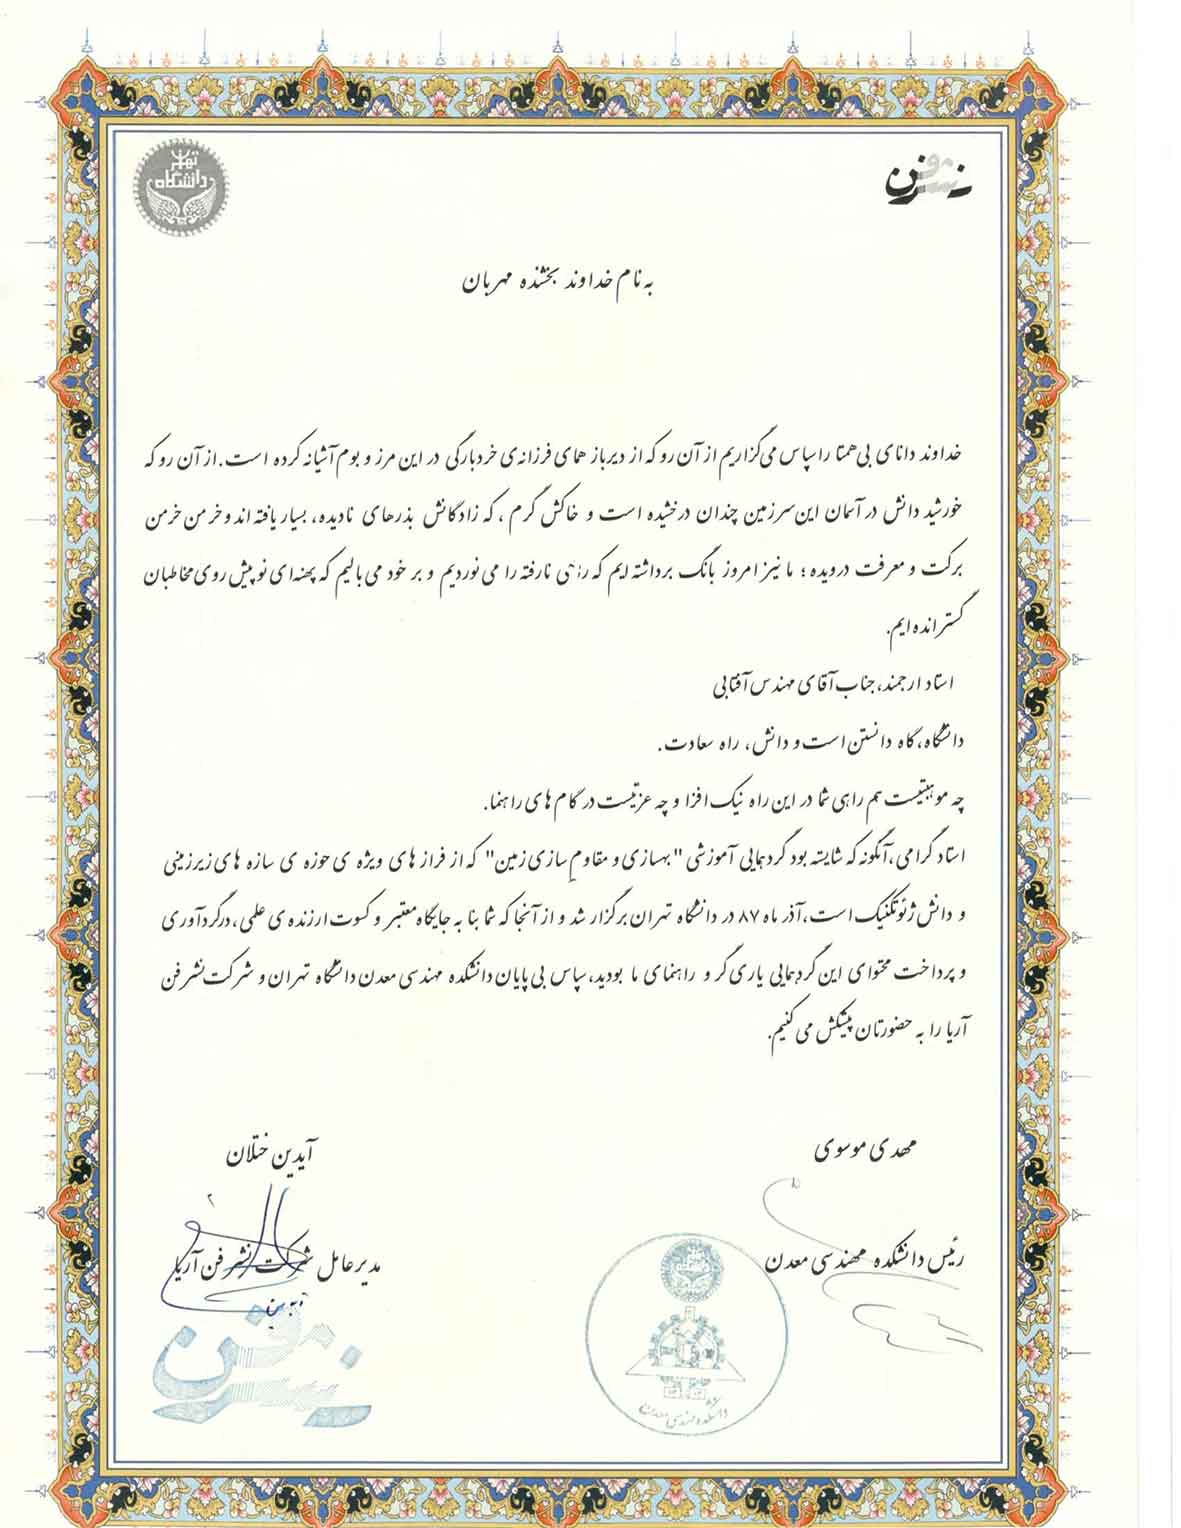 دانشگاه تهران
نشر فن
به نام خداوند بخشنده مهربان
خداوند دانای بی‌همتا را سپاس می‌گزاریم از آن رو که از دیرباز همای فرزانه‌ی خردبارگی در این مرز و بوم آشیانه کرده است. از آن رو که
خورشید دانش در آسمان این سرزمین چندان درخشیده است و خاکش گرم ، که زادگانش بذرهای نادیده، بسیار یافته اند و خرمن خرمن
برکت و معرفت درویده ؛ ما نیز امروز بانگ برداشته ایم که راهی نارفته را می نوردیم و بر خود می بالیم که پهنه‌ای نو پیش روی مخاطبان
گسترانده ایم.
استاد ارجمند، جناب آقای مهندس آفتابی
دانشگاه، گاه دانستن است و دانش، راه سعادت.
چه موهبتیست هم راهی شما در این راه نیک افزا و چه عزتیست در گام های راهنما.
استاد گرامی، آنگونه که شایسته بود گردهمایی آموزشی "بهسازی و مقاوم سازی زمین" که از فراز های ویژه ی حوزه ی سازه های زیرزمینی
و دانش ژئوتکنیک است، آذر ماه ۸۷ در دانشگاه تهران برگزار شد و از آنجا که شما بنا به جایگاه معتبر و کسوت ارزنده ی علمی، در گردآوری
و پرداخت محتوای این گردهمایی یاری گر و راهنمای ما بودید، سپاس بی پایان دانشکده مهندسی معدن دانشگاه تهران و شرکت نشر فن
آریا را به حضورتان پیشکش می کنیم.
مهدی موسوی
آیدین ختلان
رئیس دانشکده مهندسی معدن
مدیر عامل شرکت نشر فن آریا
دانشگاه تهران
دانشکده مهندسی معدن
نشر فن